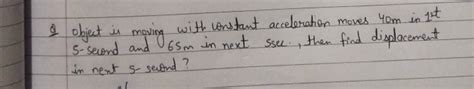 Q object is moving with constant acceleration moves 40m in 1st
5-second and 65m in next 5sec., then find displacement
in next 5-second ?